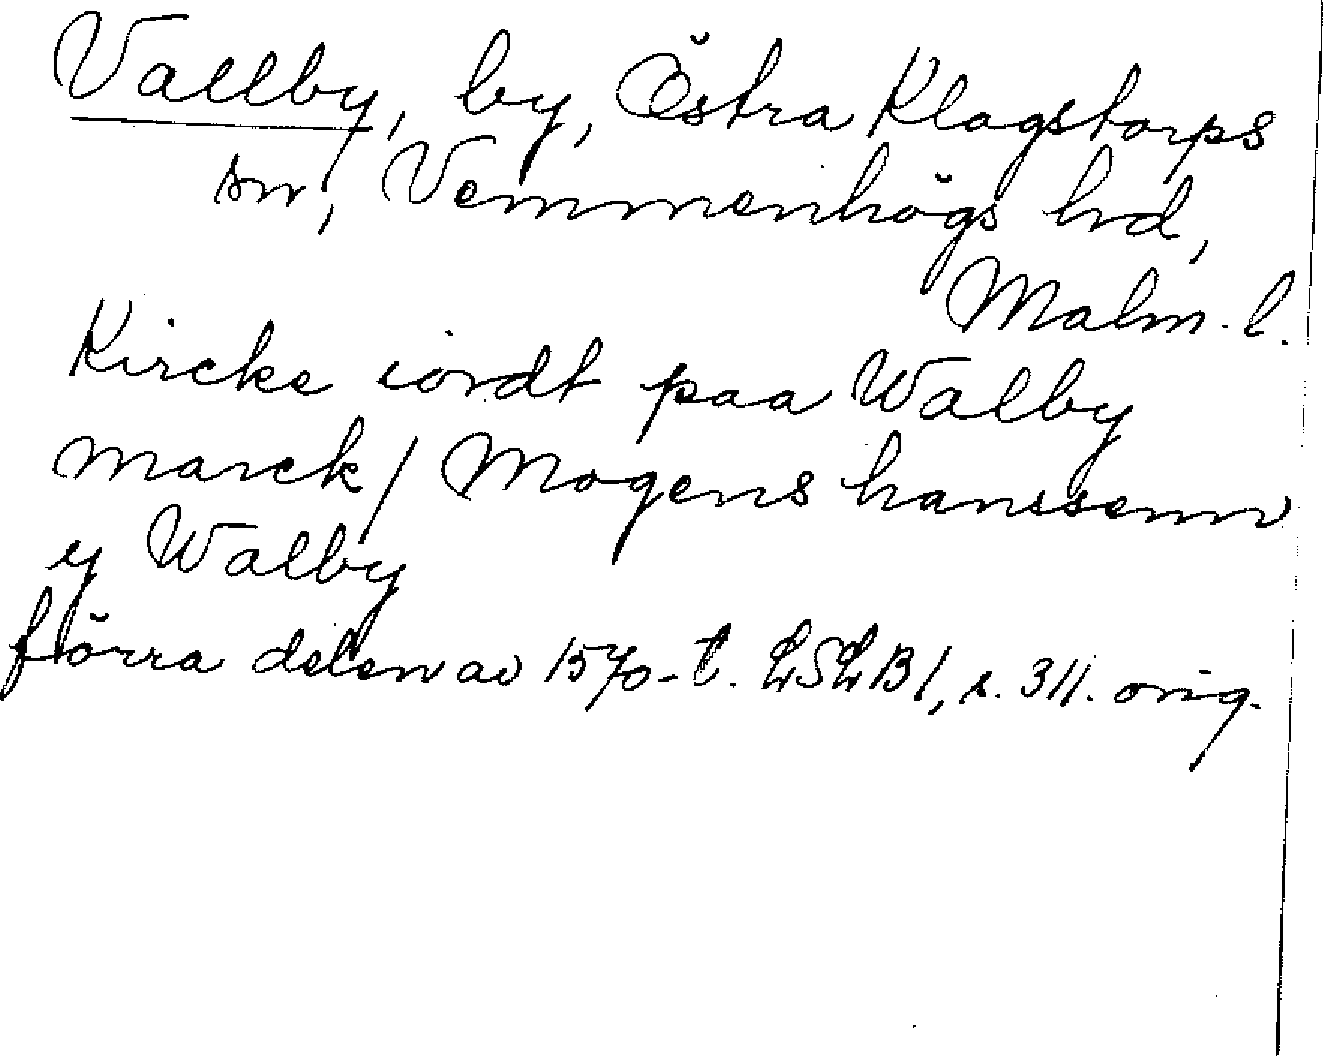 Vallby, by, Östra Klagstorps
sn, Vemmenhögs hd,
Malm. l.
Kircke iordt paa Walby
marck / Mogens hanssenn
y Walby
förra delen av 1570-t. LSLB 1, s. 311. orig.